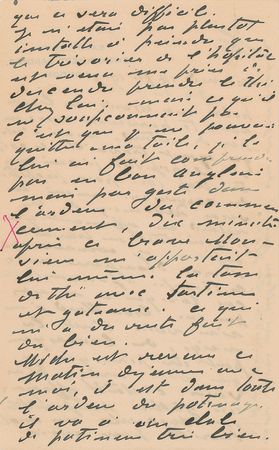 que ce sera difficile.
Je n'étais pas plustot
installé à peindre que
le trésorier de l'hopital
est venu me prier de
descendre prendre le thé
chez lui, mais ce qu'il
ne soupçonnait pas
c'est que je ne pouvais
quitter ma toile, je le
lui ai fait comprendre
pas en bon anglais
mais par geste dans
l'ardeur du commen
cement, dix minutes
après ce brave Mon-
sieur m'apportait
lui même la tasse
de thé avec tartine
et gateaux. ce qui
m'a du reste fait
du bien.
est revenu ce
matin déjeuner avec
moi, il est dans toute
l'ardeur du patinage,
il va à son club
de patineur très bien.